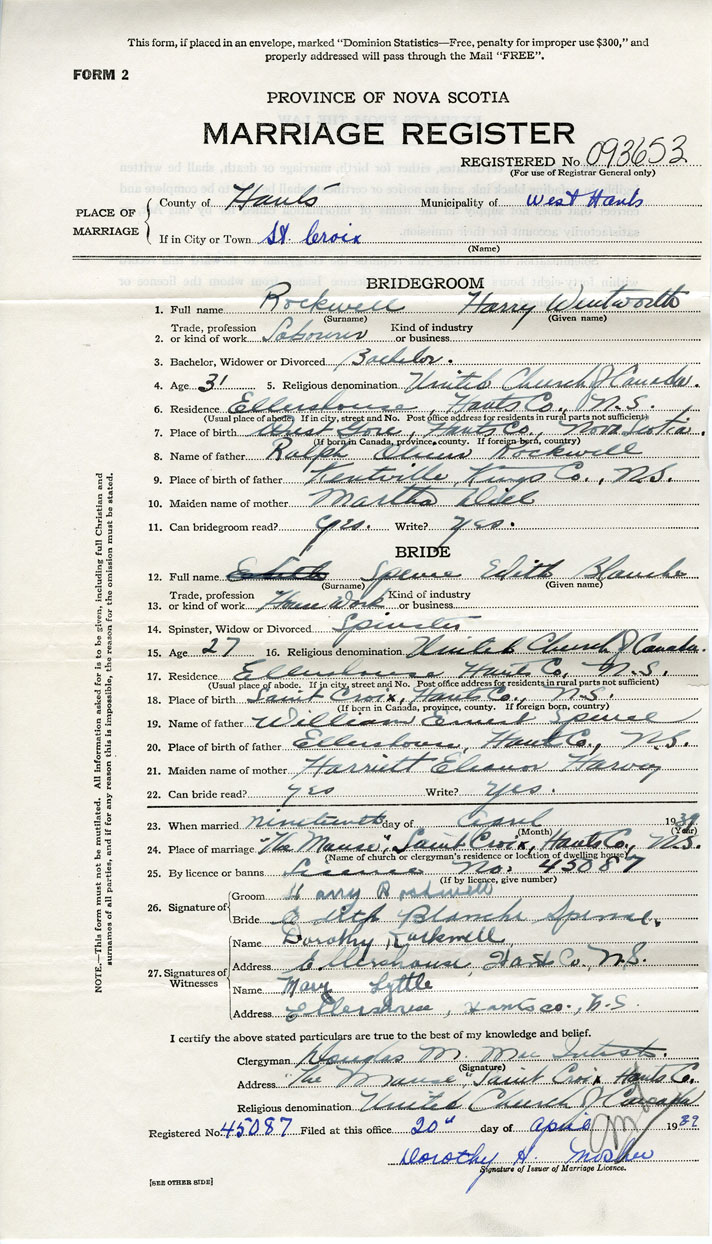 This form, if placed in an envelope, marked "Dominion Statistics—Free, penalty for improper use $300," and
properly addressed will pass through the Mail "FREE".
FORM 2
PROVINCE OF NOVA SCOTIA
MARRIAGE REGISTER
REGISTERED No 093653
(For use of Registrar General only)
PLACE OF MARRIAGE
County of Hants Municipality of West Hants
If in City or Town St. Croix
(Name)
BRIDEGROOM
1. Full name Rockwell Harry Wentworth
(Surname) (Given name)
2. Trade, profession or kind of work Labourer Kind of industry or business
3. Bachelor, Widower or Divorced Bachelor.
4. Age 31 5. Religious denomination United Church of Canada.
6. Residence Ellershouse, Hants Co., N.S.
(Usual place of abode. If in city, street and No. Post office address for residents in rural parts not sufficient)
7. Place of birth Gore, Hants Co., Nova Scotia.
(If born in Canada, province, county. If foreign born, country)
8. Name of father Ralph Rockwell
9. Place of birth of father Kentville, Kings Co., N.S.
10. Maiden name of mother Martha
11. Can bridegroom read? Yes. Write? Yes.
BRIDE
12. Full name Edith Spence Edith Blanche
(Surname) (Given name)
13. Trade, profession or kind of work House Work Kind of industry or business
14. Spinster, Widow or Divorced Spinster
15. Age 27 16. Religious denomination United Church of Canada.
17. Residence Ellershouse Hants Co., N.S.
(Usual place of abode. If in city, street and No. Post office address for residents in rural parts not sufficient)
18. Place of birth Saint Croix, Hants Co., N.S.
(If born in Canada, province, county. If foreign born, country)
19. Name of father William Ernest Spence
20. Place of birth of father Ellershouse, Hants Co., N.S.
21. Maiden name of mother Harriett Eleanor Harvey
22. Can bride read? Yes Write? Yes.
23. When married nineteenth day of April 1939
(Month) (Year)
24. Place of marriage "The Manse", Saint Croix, Hants Co., N.S.
(Name of church or clergyman's residence or location of dwelling house)
25. By licence or banns License No: 45087
(If by licence, give number)
26. Signature of
Groom Harry Rockwell
Bride Edith Blanche Spence.
27. Signatures of Witnesses
Name Dorothy Rockwell,
Address Ellershouse, Hants Co, N.S.
Name Mary Lyttle
Address Ellershouse, Hants co., N.S.
I certify the above stated particulars are true to the best of my knowledge and belief.
Clergyman Douglas M. Mac Intosh.
(Signature)
Address "The Manse" Saint Croix Hants Co.
Religious denomination United Church of Canada
Registered No. 45087 Filed at this office 20" day of April 1939
Dorothy H. Mosher
Signature of Issuer of Marriage Licence.
[SEE OTHER SIDE]
NOTE.—This form must not be mutilated. All information asked for is to be given, including full Christian and
surnames of all parties, and if for any reason this is impossible, the reason for the omission must be stated.